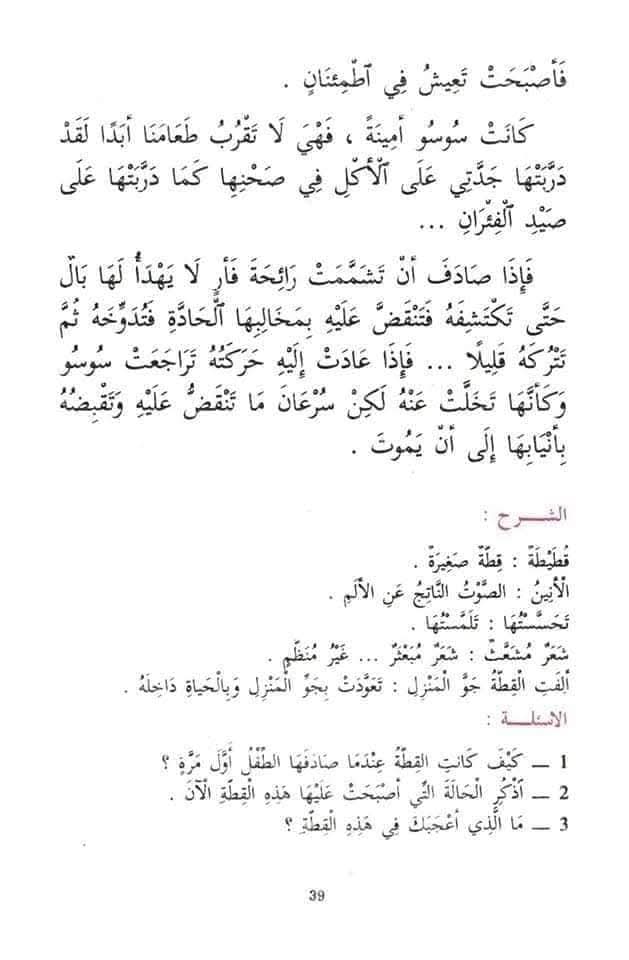 فَأَصْبَحَتْ تَعِيشُ فِي ٱطْمِئنَانٍ .
كَانَتْ سُوسُو أَمِينَةً ، فَهْيَ لَا تَقْرُبُ طَعَامَنَا أَبَدًا لَقَدْ
دَرَّبَتْهَا جَدَّتِي عَلَى ٱلْأَكْلِ فِي صَحْنِهَا كَمَا دَرَّبَتْهَا عَلَى
صَيْدِ ٱلْفِئْرَانِ ...
فَإِذَا صَادَفَ أَنْ تَشَمَّمَتْ رَائِحَةَ فَأْرٍ لَا يَهْدَأُ لَهَا بَالٌ
حَتَّى تَكْتَشِفَهُ فَتَنْقَضَّ عَلَيْهِ بِمَخَالِبِهَا ٱلْحَادَّةِ فَتُدَوِّخَهُ ثُمَّ
تَتْرُكَهُ قَلِيلًا ... فَإِذَا عَادَتْ إِلَيْهِ حَرَكَتُهُ تَرَاجَعَتْ سُوسُو
وَكَأَنَّهَا تَخَلَّتْ عَنْهُ لَكِنْ سُرْعَانَ مَا تَنْقَضُّ عَلَيْهِ وَتَقْبِضُهُ
بِأَنْيَابِهَا إِلَى أَنْ يَمُوتَ .
الشـــرح :
قُطَيْطَةً : قِطَّةٌ صَغِيرَةٌ .
الْأَنِينُ : الصَّوْتُ النَّاتِجُ عَنِ الأَلَمِ .
تَحَسَّسْتُهَا : تَلَمَّسْتُهَا .
شَعَرٌ مُشَعَّثٌ : شَعَرٌ مُبَعْثَرٌ ... غَيْرُ مُنَظَّمٍ .
أَلِفَتِ الْقِطَّةُ جَوَّ الْمَنْزِلِ : تَعَوَّدَتْ بِجَوِّ الْمَنْزِلِ وَبِالْحَيَاةِ دَاخِلَهُ .
الاسئلـــة :
1 ــ كَيْفَ كَانَتِ القِطَّةُ عِنْدَمَا صَادَفَهَا الطِّفْلُ أَوَّلَ مَرَّةٍ ؟
2 ــ اُذْكُرِ الْحَالَةَ الَّتِي أَصْبَحَتْ عَلَيْهَا هَذِهِ الْقِطَّةِ الْآنَ .
3 ــ مَا الَّذِي أَعْجَبَكَ فِي هَذِهِ الْقِطَّةِ ؟
39